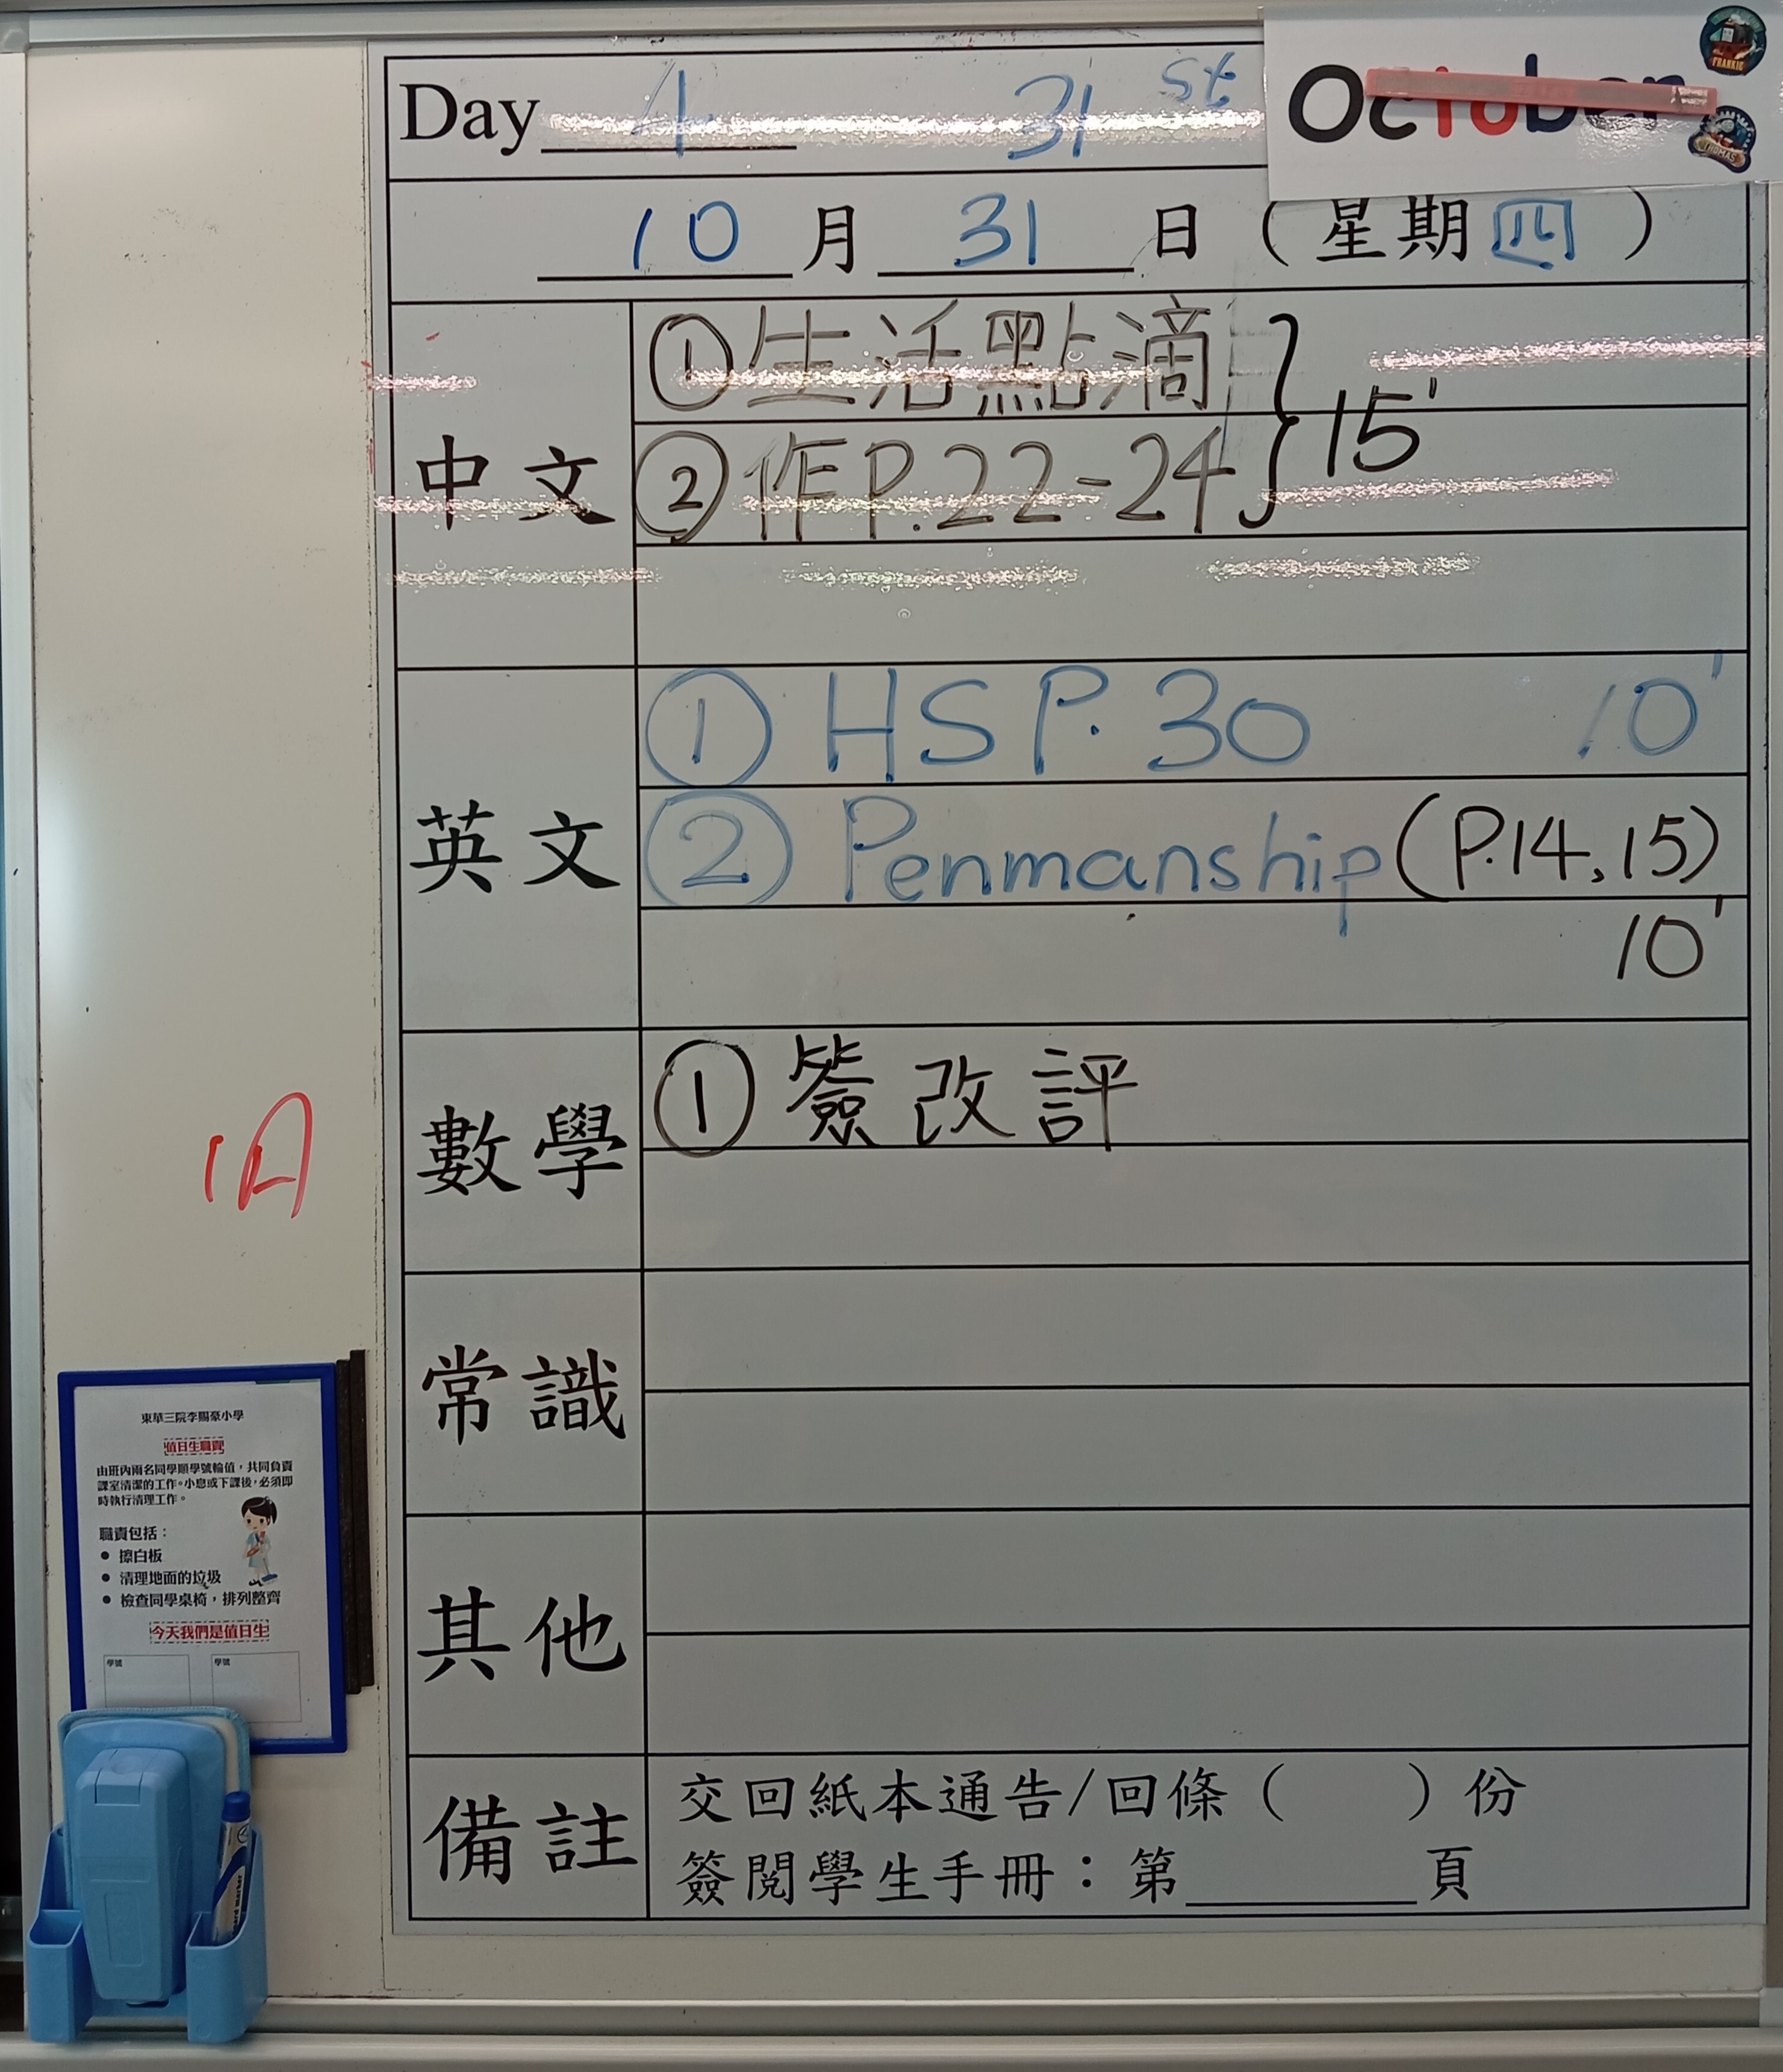 Day 4 31st October
10月31日（星期四）
中文
①生活點滴
②作P.22-24
} 15'
英文
① HS P.30 10'
② Penmanship (P.14,15)
10'
數學
①簽改評
常識
其他
備註
交回紙本通告/回條（ ）份
簽閱學生手冊：第______頁
1A
東華三院李賜豪小學
值日生職責
由班內兩名同學順學號輪值，共同負責
課室清潔的工作。小息或下課後，必須即
時執行清理工作。
職責包括：
● 擦白板
● 清理地面的垃圾
● 檢查同學桌椅，排列整齊
今天我們是值日生
學號 學號
FRANKIE
THOMAS